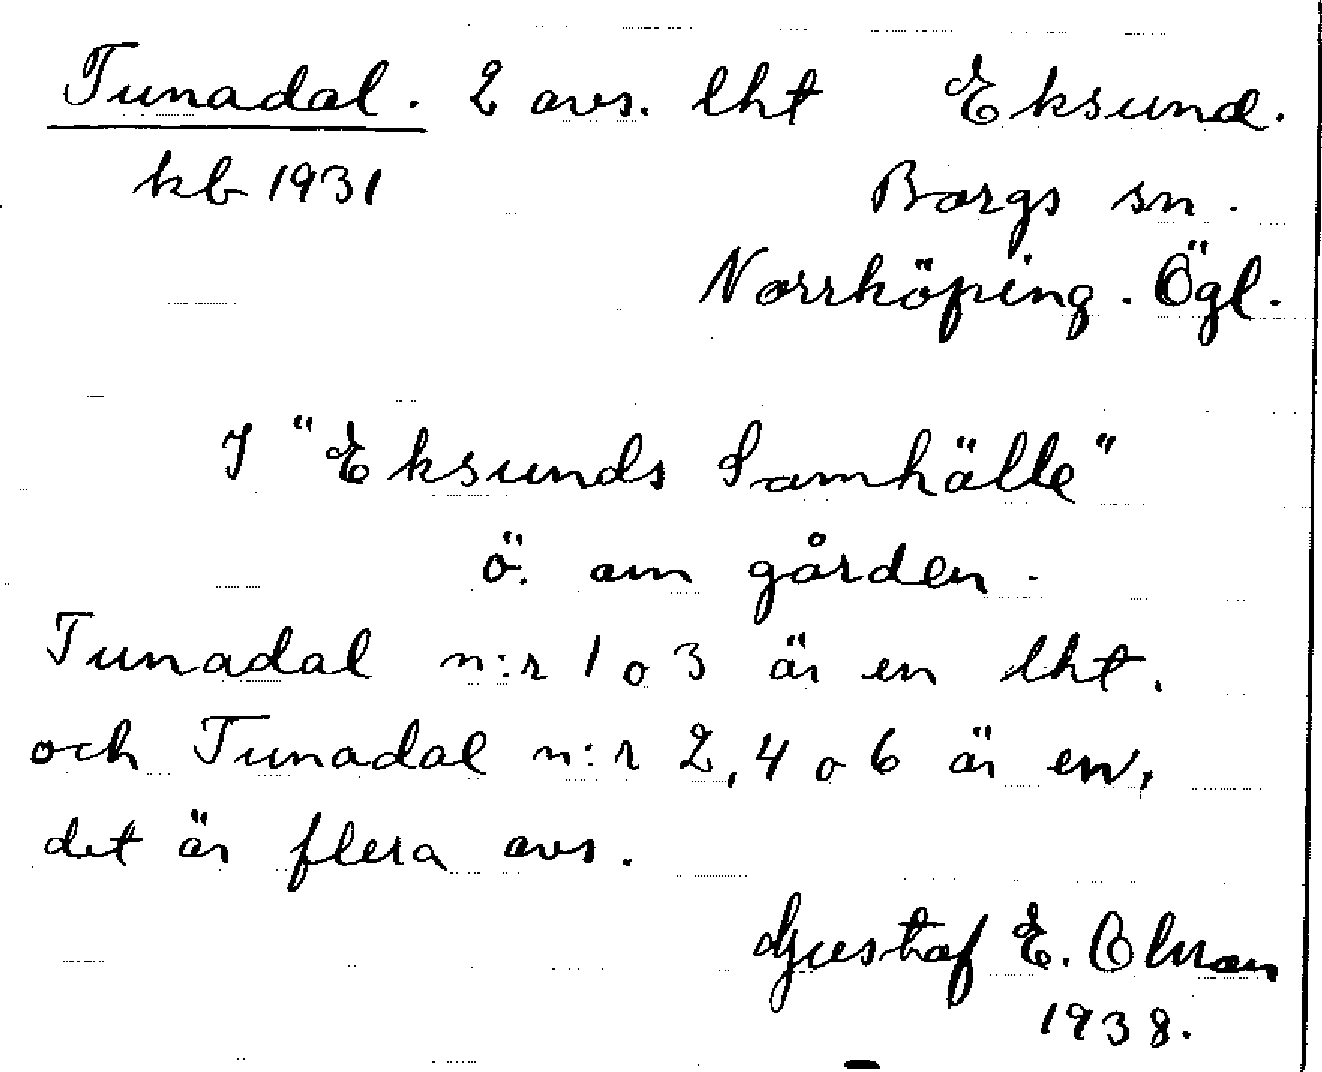 Tunadal. 2 avs. lht Eksund.
kb 1931 Borgs sn.
Norrköping. Ögl.
I "Eksunds Samhälle"
ö. om gården.
Tunadal n:r 1 o 3 är en lht.
och Tunadal n:r 2, 4 o 6 är en,
det är flera avs.
Gustaf E. Olman
1938.